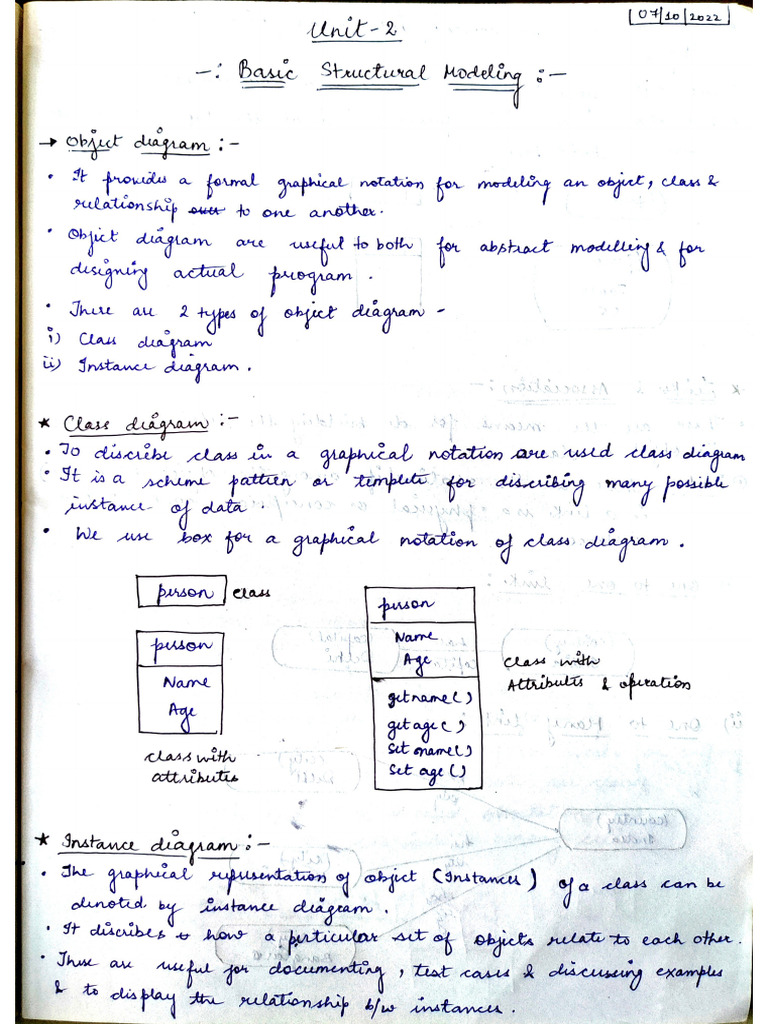 07/10/2022
Unit-2
-: Basic Structural Modeling :-
→ Object diagram :-
• It provides a formal graphical notation for modeling an object, class &
relationship to one another.
• Object diagram are useful to both for abstract modelling & for
designing actual program.
• There are 2 types of object diagram -
i) Class diagram
ii) Instance diagram.
* Class diagram :-
• To discribe class in a graphical notation are used class diagram
• It is a scheme pattren or templete for discribing many possible
instance of data
• We use box for a graphical notation of class diagram.
person class
person
Name
Age
class with
attributes
person
Name
Age
getname()
get age()
Set name()
Set age()
class with
Attributes & operation
* Instance diagram :-
• The graphical representation of object (Instances) of a class can be
denoted by instance diagram.
• It discribes how a perticular set of objects relate to each other.
• These are useful for documenting, test cases & discussing examples
& to display the relationship b/w instances.